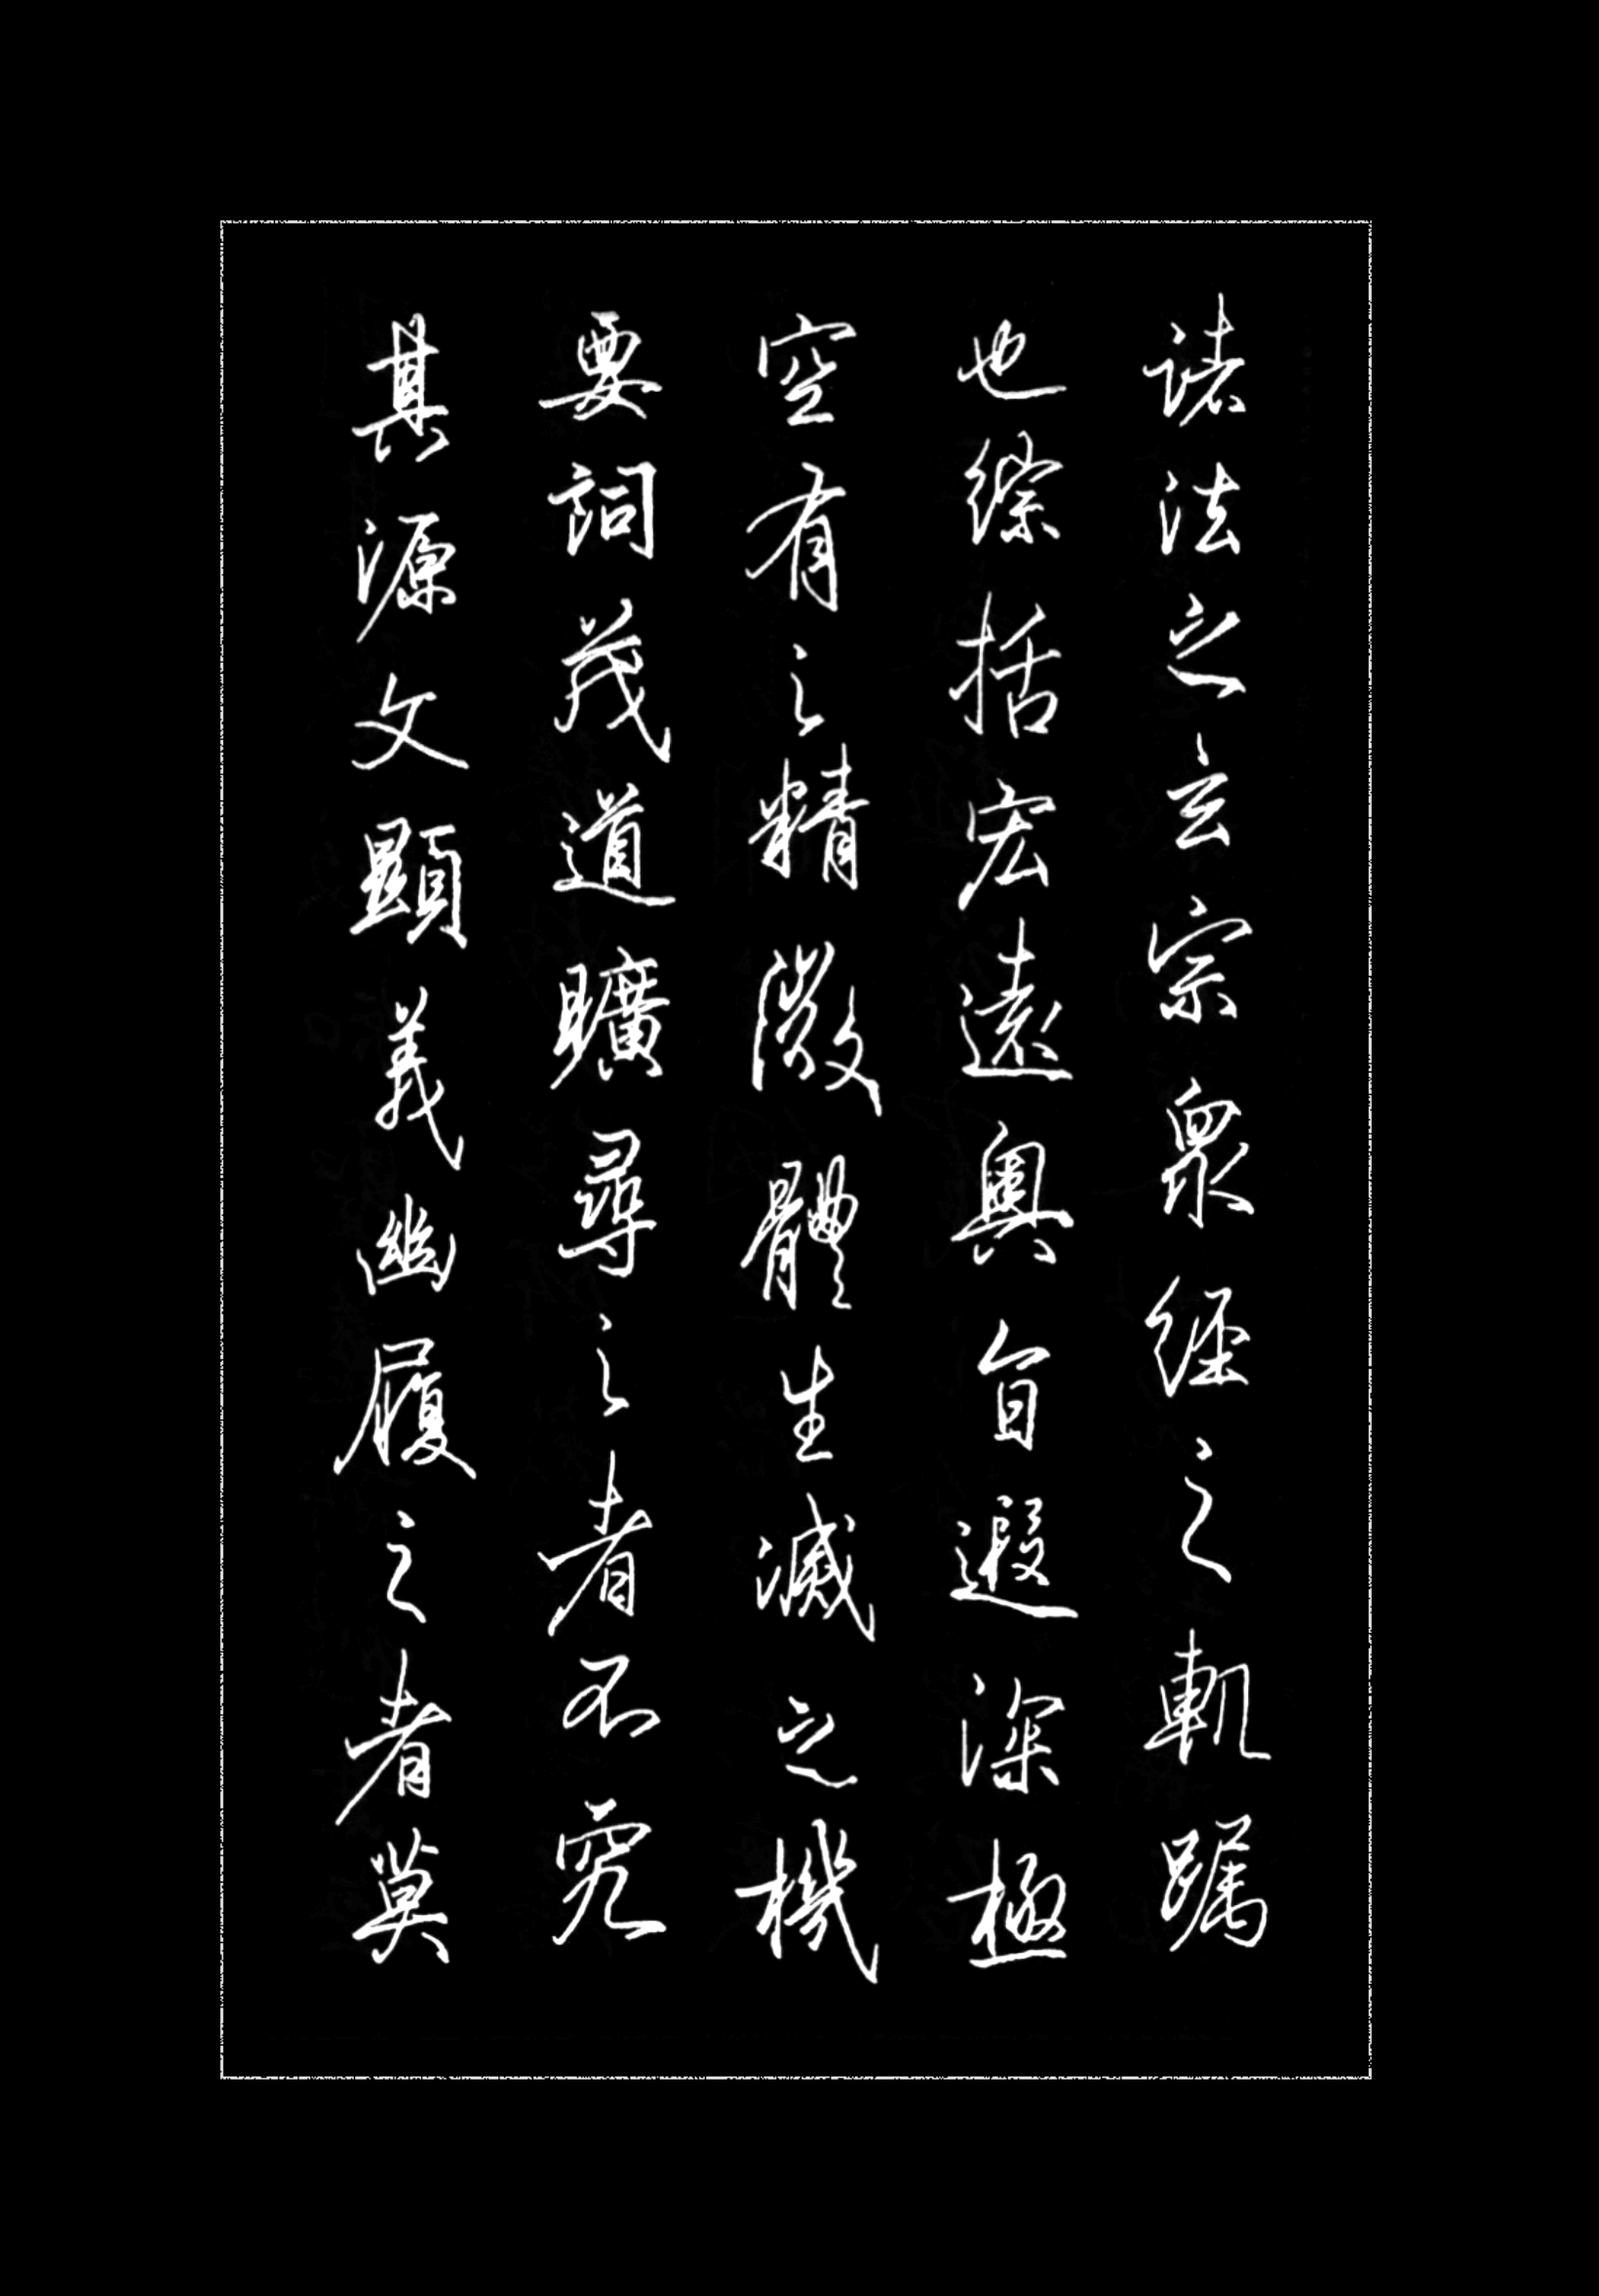 諸法之玄宗衆經之軌躅
也綜括宏遠奧旨遐深極
空有之精微體生滅之機
要詞茂道曠尋之者不究
其源文顯義幽履之者莫